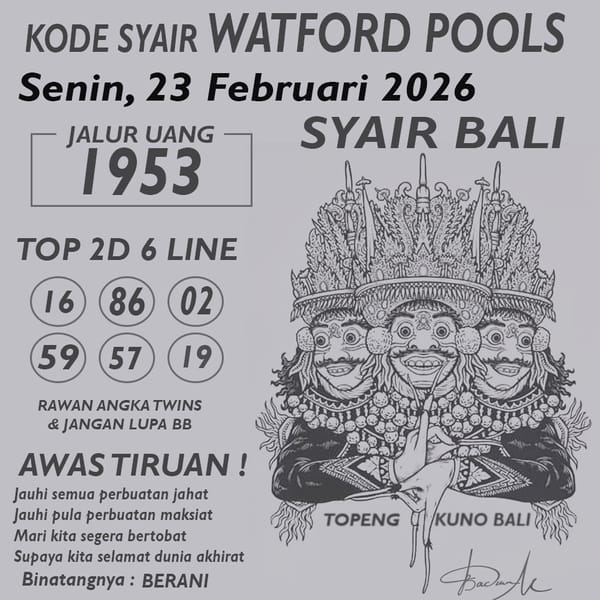 KODE SYAIR WATFORD POOLS
Senin, 23 Februari 2026
JALUR UANG
1953
SYAIR BALI
TOP 2D 6 LINE
16 86 02
59 57 19
RAWAN ANGKA TWINS
& JANGAN LUPA BB
AWAS TIRUAN !
Jauhi semua perbuatan jahat
Jauhi pula perbuatan maksiat
Mari kita segera bertobat
Supaya kita selamat dunia akhirat
Binatangnya : BERANI
TOPENG KUNO BALI